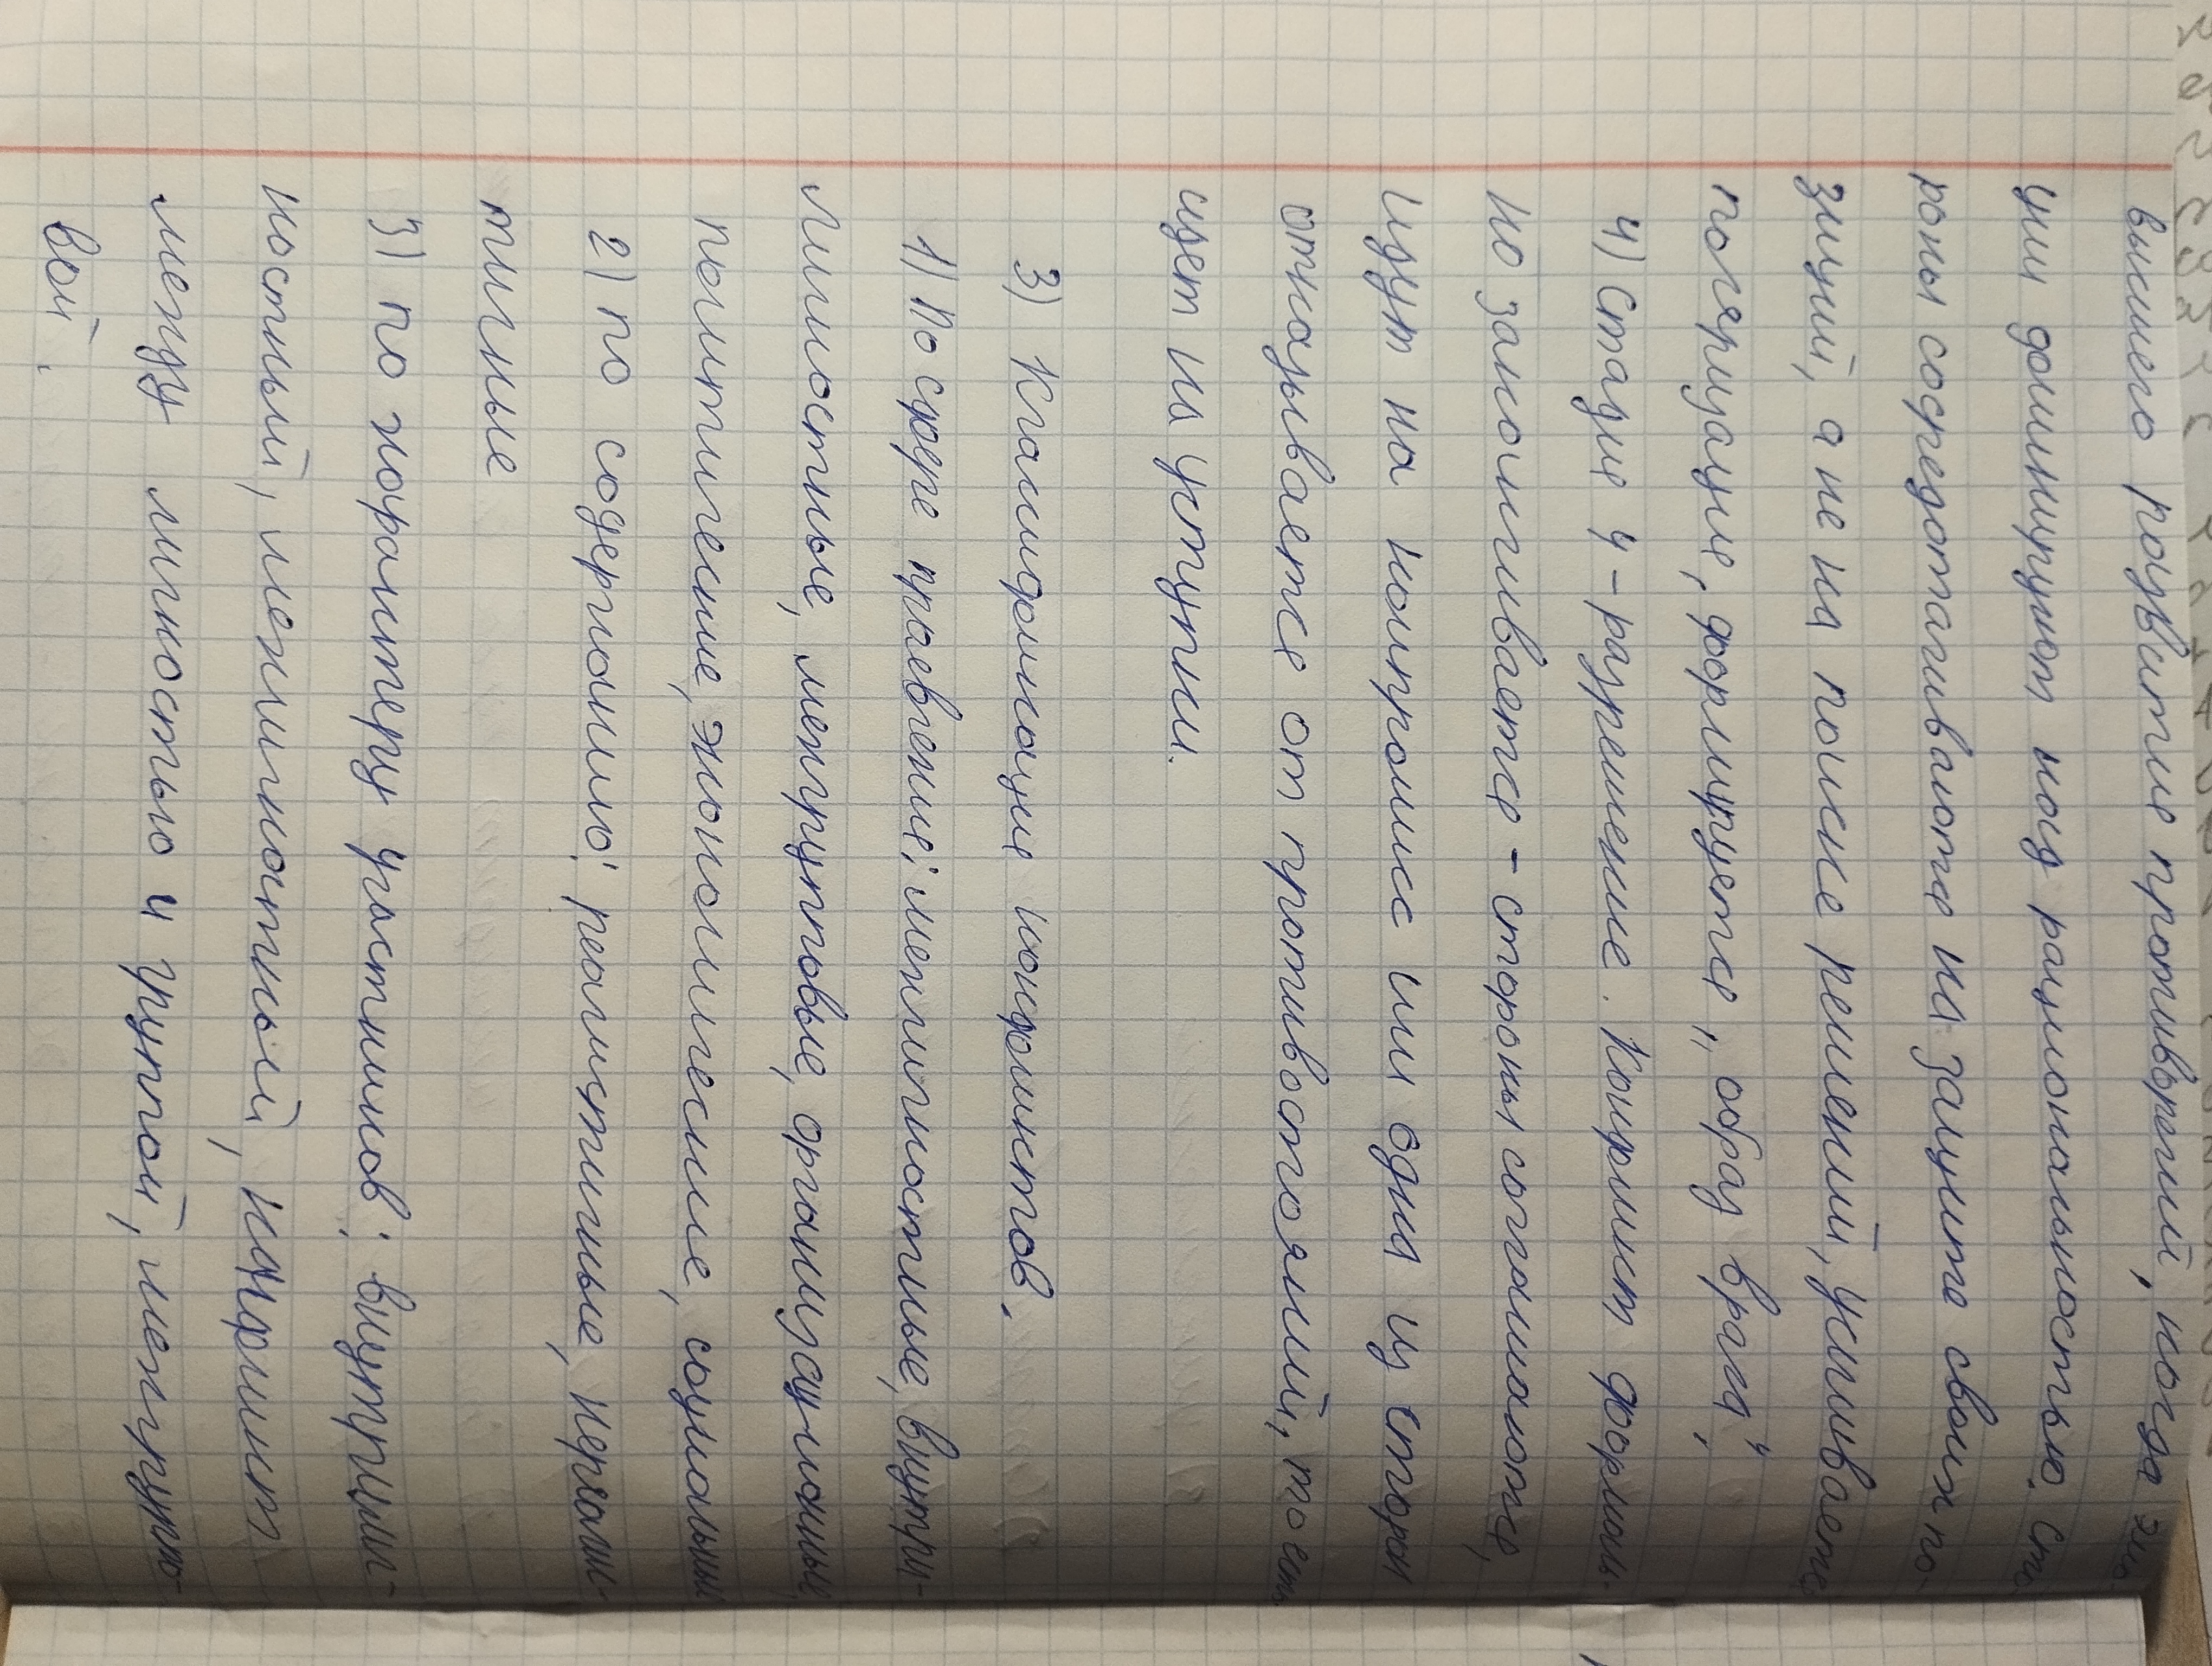 высшего развития противоречий, когда эмо-
ции доминируют над рациональностью. Сто-
роны сосредотачиваются на защите своих по-
зиций, а не на поиске решений, усиливается
поляризация, формируется „образ врага“,
4) Стадия 4 - разрешение. Конфликт формаль-
но заканчивается - стороны соглашаются,
идут на компромисс или одна из сторон
отказывается от противостояний, то есть
идет на уступки.
3) Классификация конфликтов.
1) По сфере проявления: межличностные, внутри-
личностные, межгрупповые, организационные,
политические, экономические, социальные
2) по содержанию: реалистичные, нереалис-
тичные
3) по характеру участников: внутрилич-
ностный, межличностный, конфликт
между личностью и группой, межгруппо-
вой.